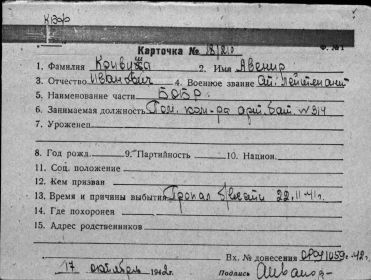 КБФ
Карточка № 18/210 Ф. № 1
1. Фамилия 2. Имя Авенир
3. Отчество Иванович 4. Военное звание Ст. лейтенант
5. Наименование части БОБР.
6. Занимаемая должность Пом. ком-ра арт. бат. № 314
7. Уроженец
8. Год рожд. 9. Партийность 10. Национ.
11. Соц. положение
12. Кем призван
13. Время и причины выбытия Пропал б/вести 22.II-41г.
14. Где похоронен
15. Адрес родственников
Вх. № донесения 1059с-42г.
17 октября 1942г. Подпись